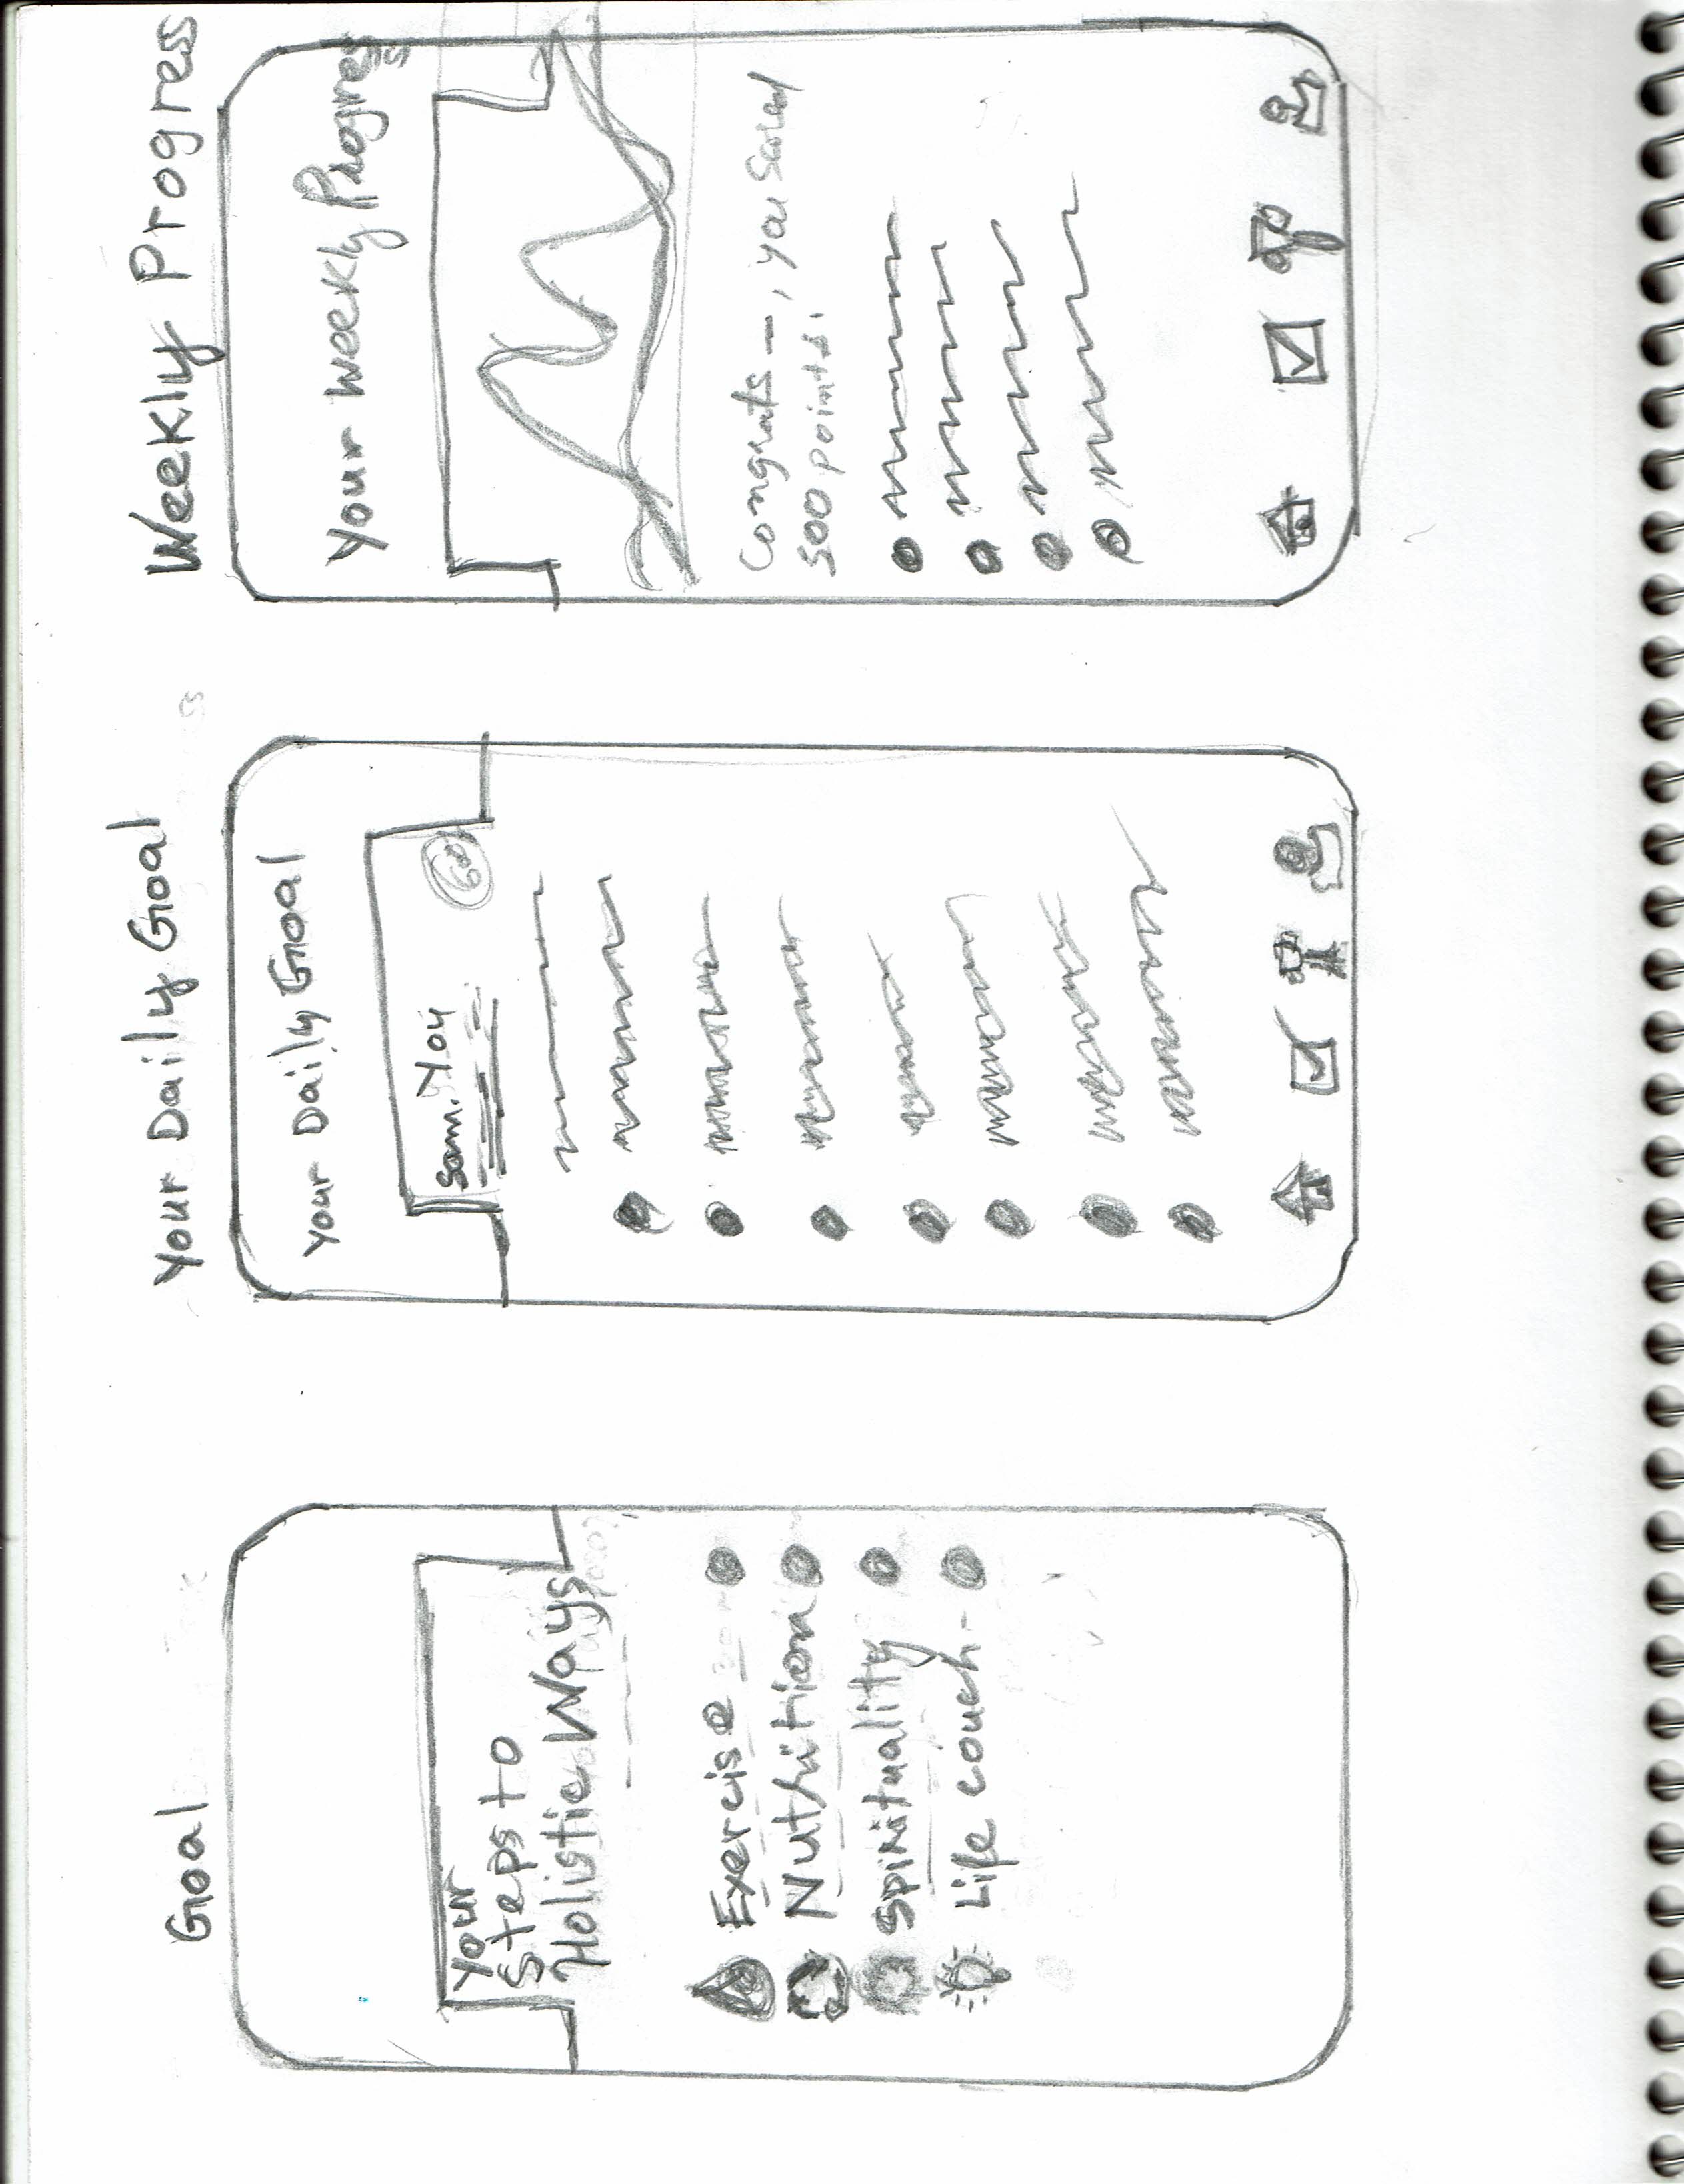 Goal
Your
Steps to
Holistic Ways
Exercise
Nutrition
Spirituality
Life couch
Your Daily Goal
Your Daily Goal
Weekly Progress
Your Weekly Progress
Congrats —, you scored
500 points,